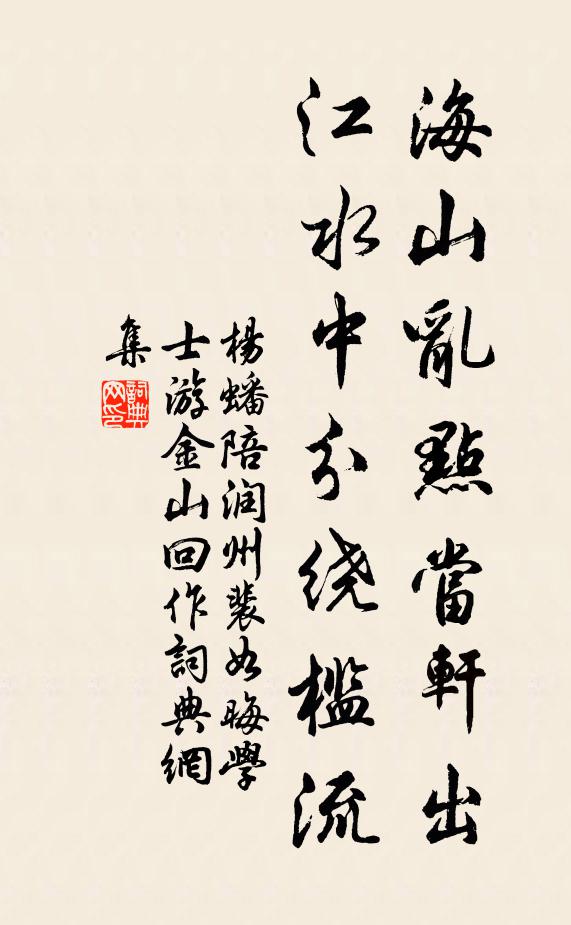 海山亂點當軒出
江水中分绕檻流
楊蟠陪润州裴如晦學
士游金山回作詞典網
集
詞典网印